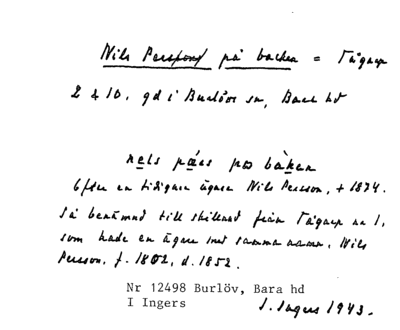 Nils Perspers på backen = Tågarp
2 & 10. gd i Burlövs sn, Bara hd
nels pæes po bàken
Efter en tidigare ägare Nils Persson, + 1874.
Så benämnd till skillnad från Tågarp nr 1,
som hade en ägare med samma namn, Nils
Persson, f. 1802, d. 1852.
Nr 12498 Burlöv, Bara hd
I Ingers
I. Ingers 1943.